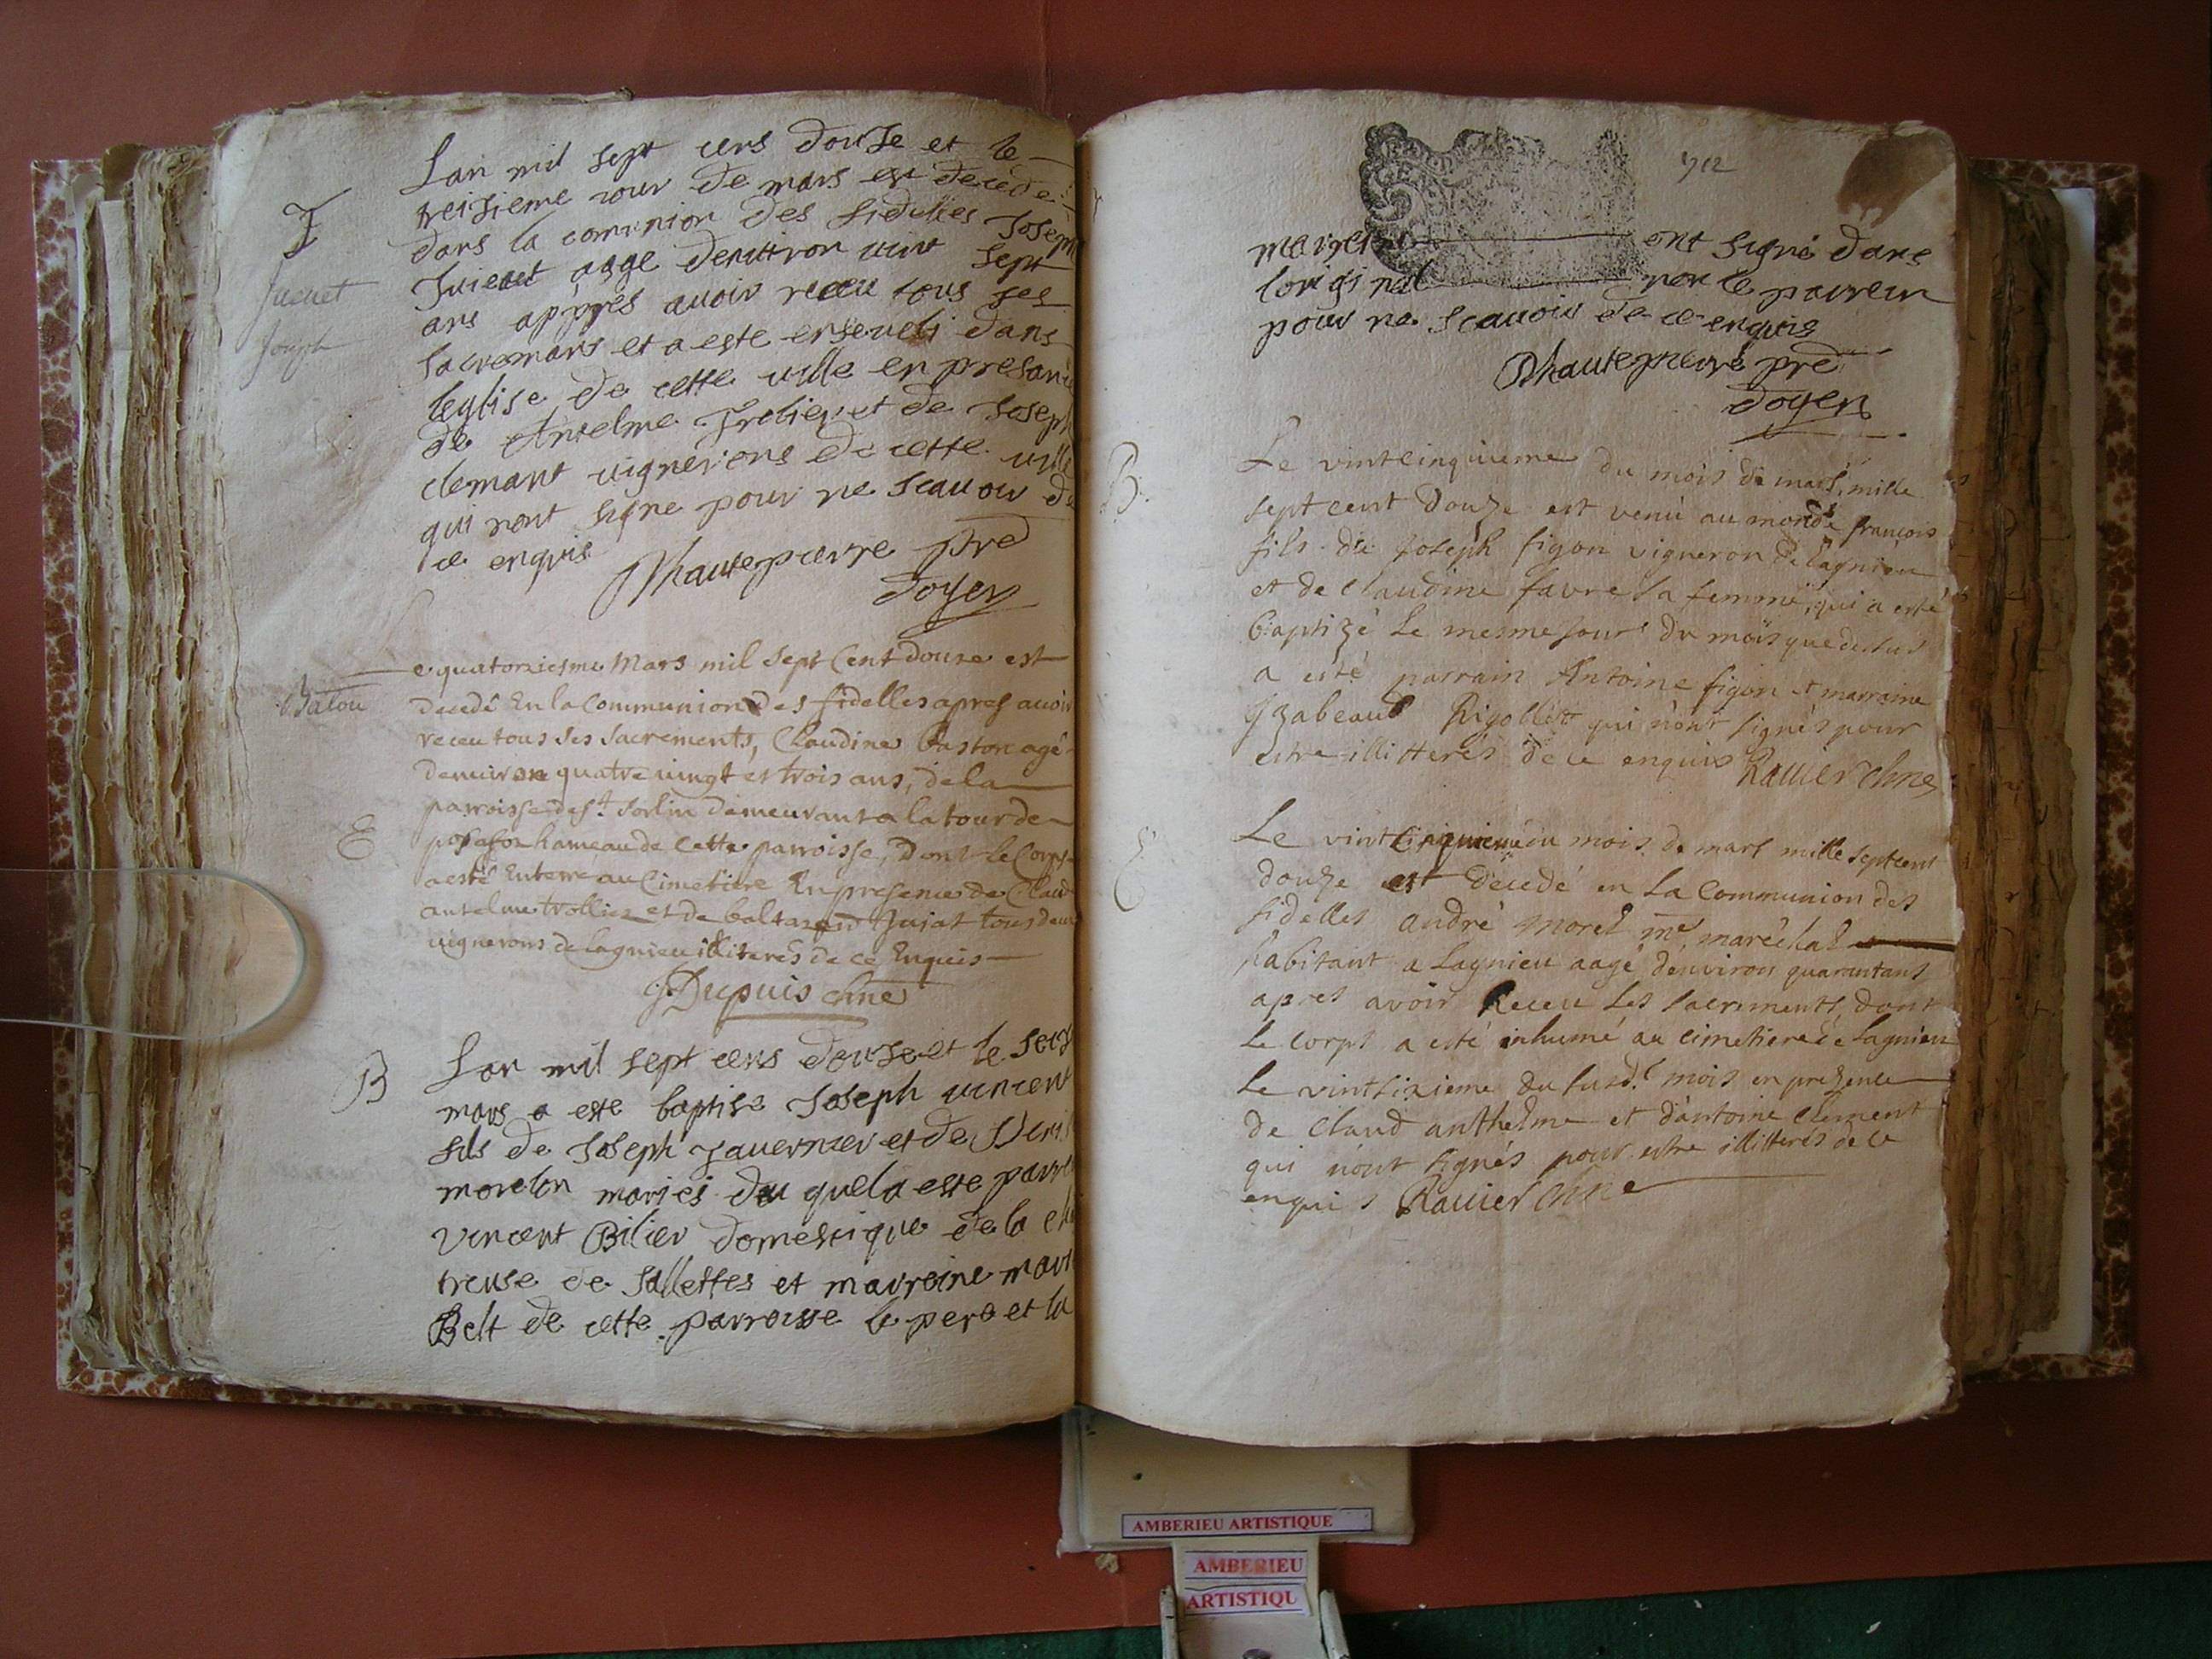 Lan mil sept cens douse et le
treisieme iour de mars est decede
dans la comunion des fidelles Joseph
Juienet aage denuiron uint sept
ans appres auoir receu tous ses
sacremans et a este enseueli dans
leglise de cette uille en presance
de Antelme Trolier et de Joseph
clemant uignerons de cette uille
qui nont signe pour ne scauoir de
ce enquis
Dhautepierre pre
doyen
Joseph
e quatorziesme Mars mil sept Cent douze est
decedé En la Communion des fidelles apres auoir
receu tous ses sacrements, Claudine Baston agé
denuiron quatre uingt et trois ans, de la
parroisse de st. Sorlin demeurant a la tour de
hameau de cette parroisse, Dont le Corps
a esté Enterré au Cimetiere En presence de Claud
antelme trollier et de baltazard Jujat tous deux
uignerons de lagnieu illiterés de ce Enquis
E
JDupuis chne
B
Lan mil sept cens douse et le seise
mars a este baptise Joseph uincent
fils de Joseph Tauernier et de Denise
morelon maries du quel a este parrein
Vincent Bilier domestique de la char
treuse de Sallettes et marreine marie
Belt de cette parroisse le pere et la
712
ont signé dans
loriginel non le parrein
pour ne scauoir de ce enquis
Dhautepierre pre
doyen
B.
Le vintcinquieme du mois de mars, mille
septcent douze est venu au monde françois
fils de Joseph figon vigneron de Lagnieu
et de Claudine favre sa femme, qui a esté
baptizé Le mesme jour du mois que dessus
a esté parrain Antoine figon et marraine
Yzabeaud Rigollet qui n'ont signés pour
estre illitterés de ce enquis Ravier chne
E
Le vintcinquieme du mois de mars mille septcent
douze est décedé en La Communion des
fidelles andré morel me. maréchal
habitant a Lagnieu aagé denviron quarantans
apres avoir Receu Les sacrements, dont
Le corps a esté inhumé au cimetiere de Lagnieu
Le vintsixieme du susd.t mois en presence
de Claud anthelme et d'antoine Clement
qui n'ont signés pour estre illitterés de ce
enquis Ravier chne
AMBERIEU ARTISTIQUE
AMBERIEU
ARTISTIQU